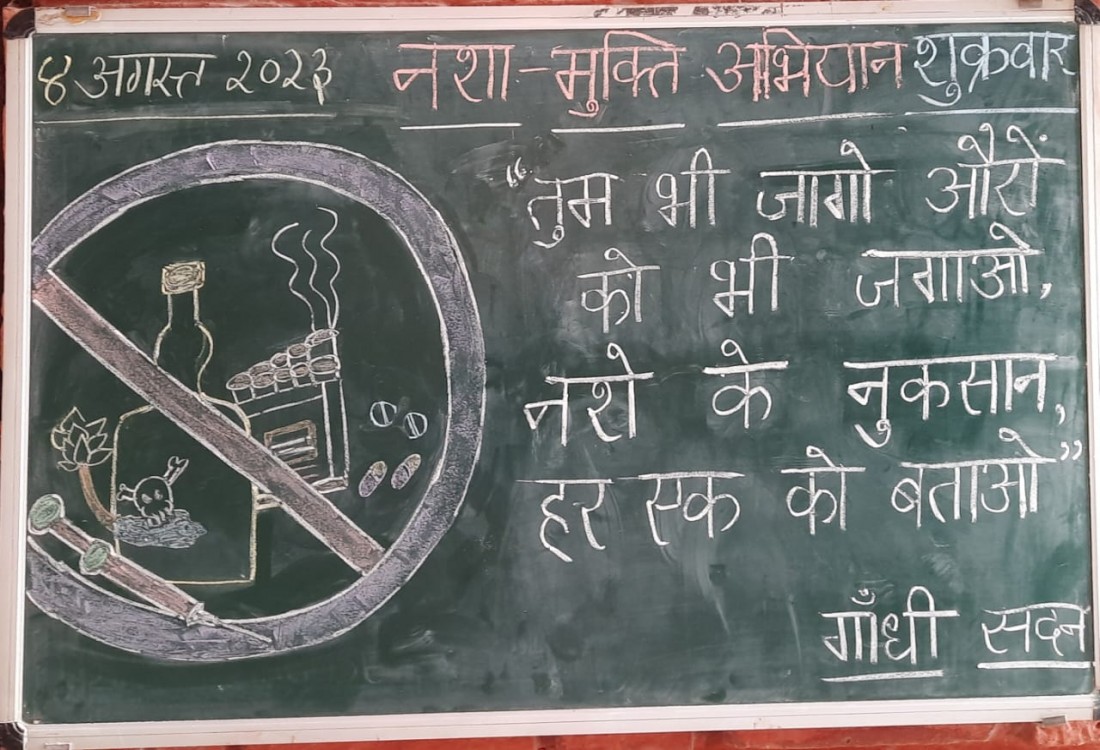 ४ अगस्त २०२३ नशा-मुक्ति अभियान शुक्रवार
“तुम भी जागो औरों
को भी जगाओ,
नशे के नुकसान,
हर एक को बताओ”
गाँधी सदन